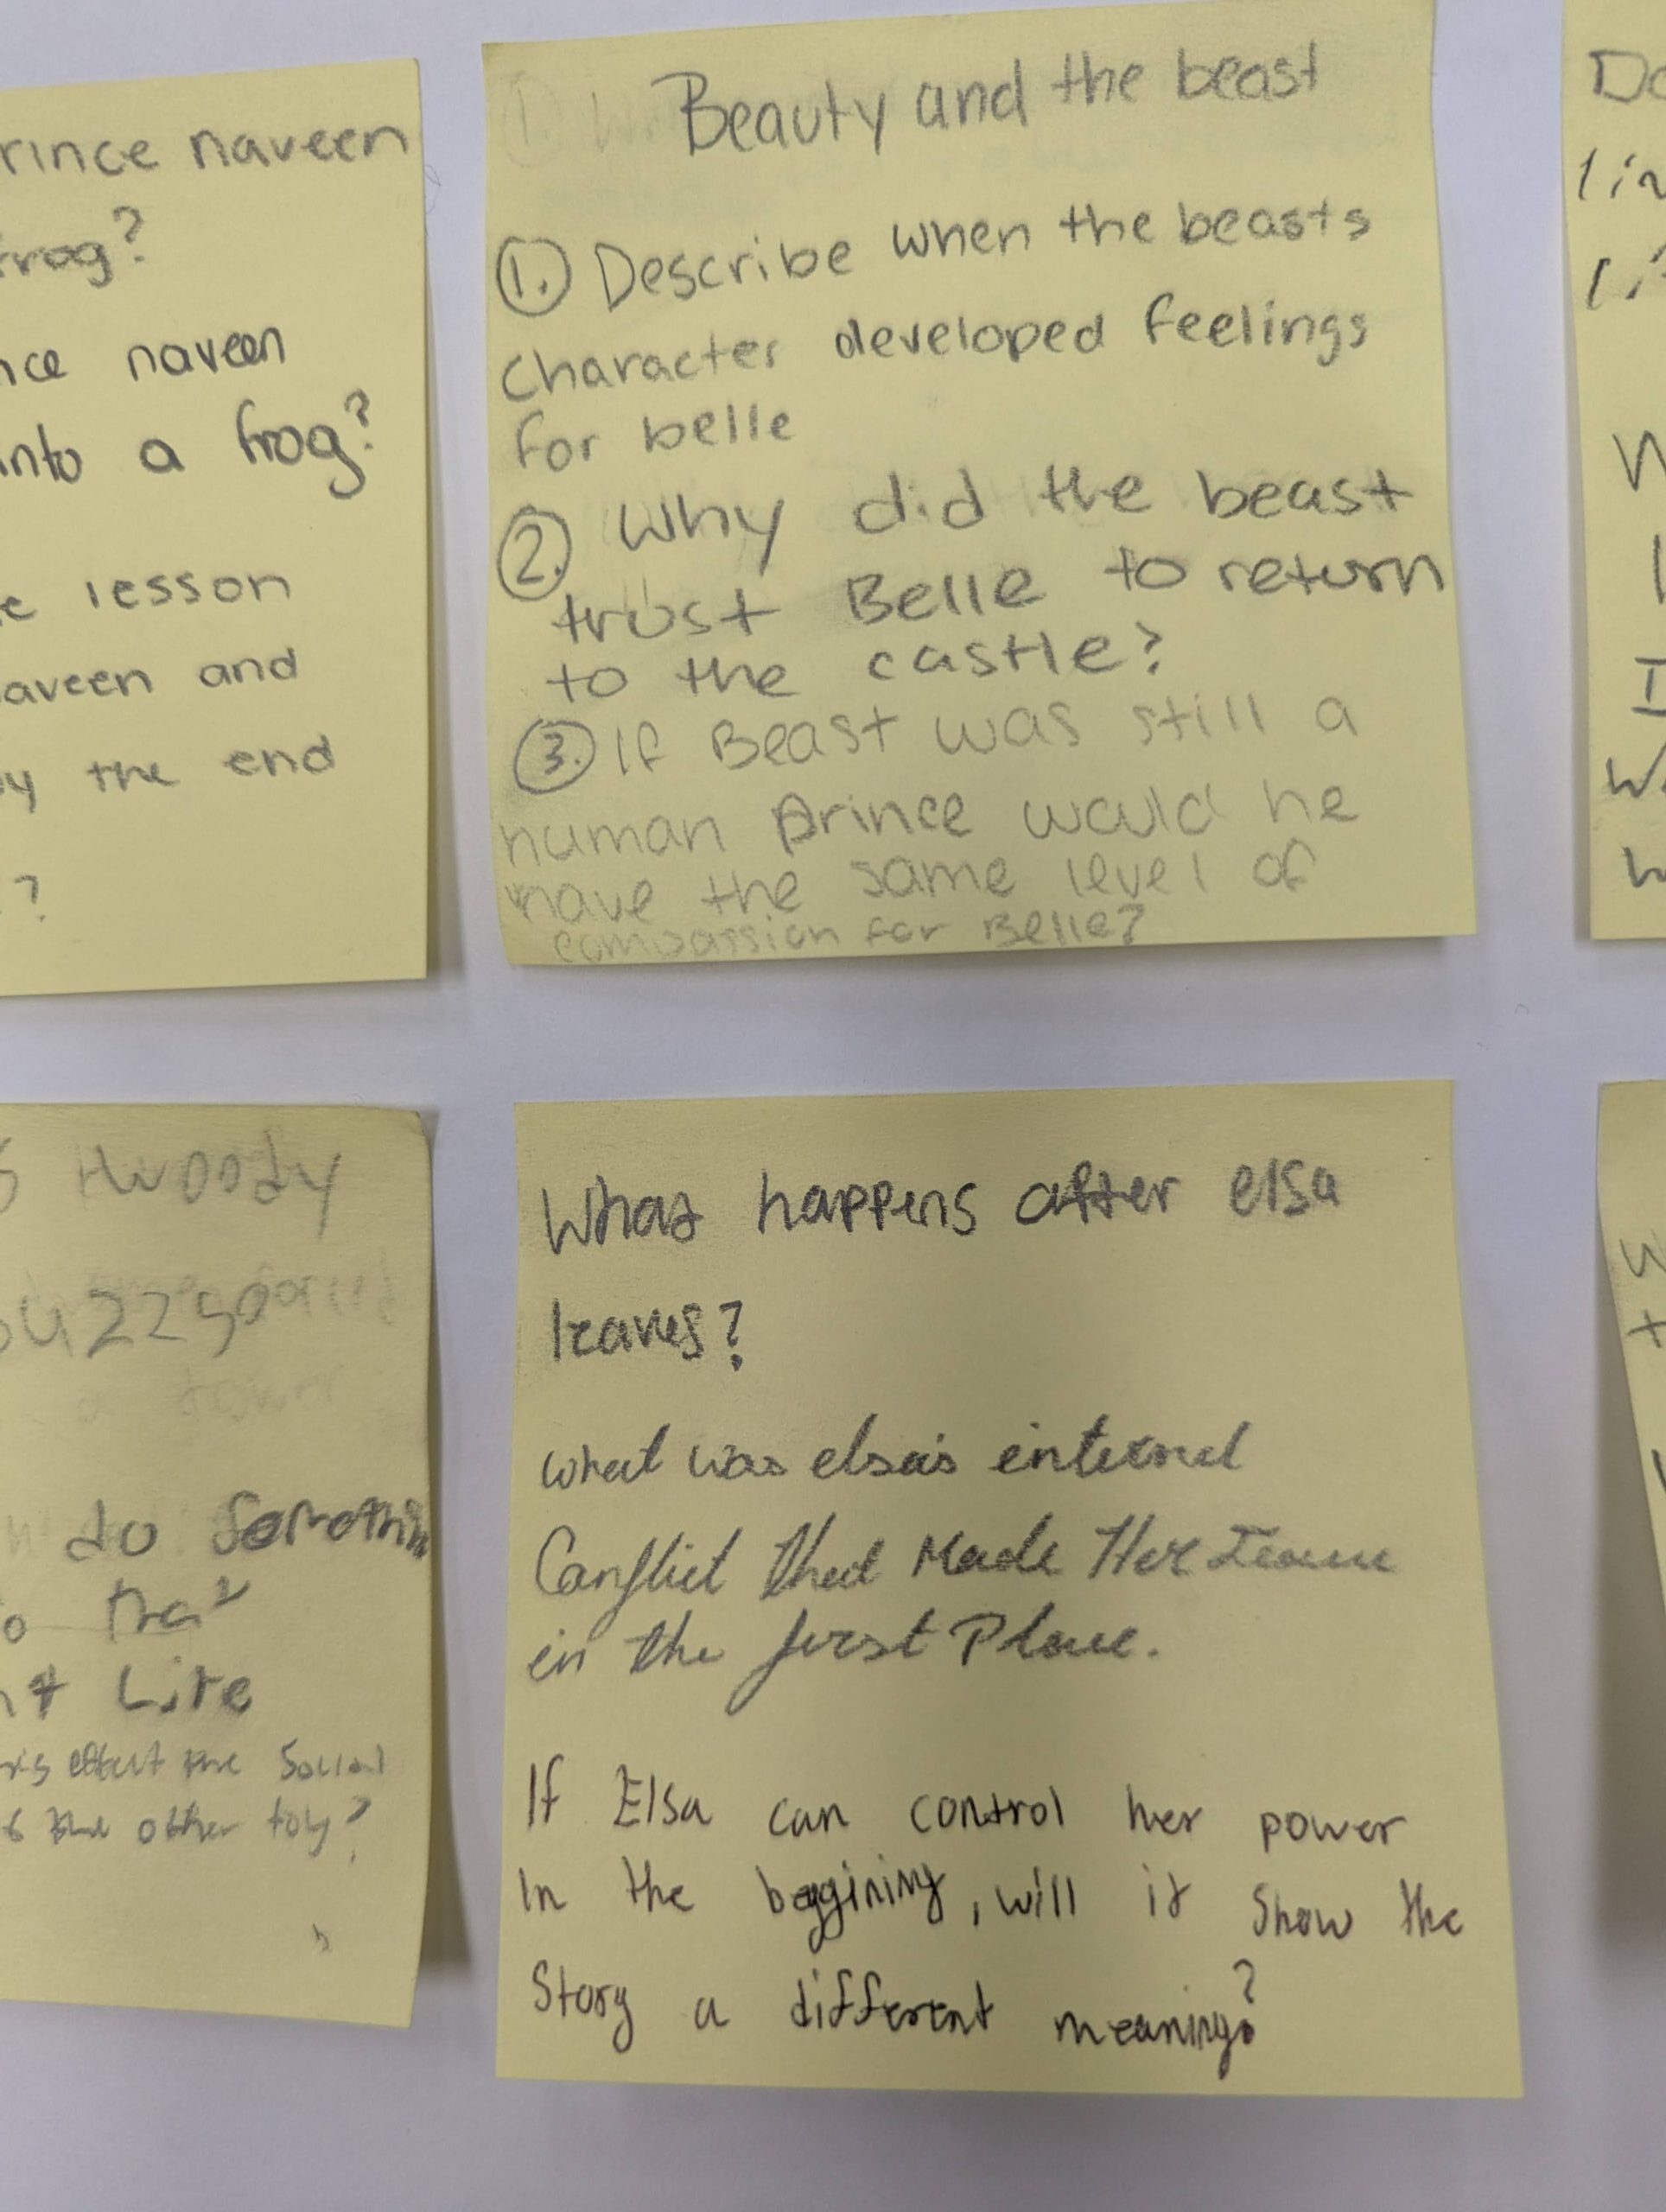 rince naveen
frog?
nce naveen
into a frog?
e lesson
aveen and
by the end
?
Beauty and the beast
1. Describe when the beasts
character developed feelings
for belle
2. Why did the beast
trust Belle to return
to the castle?
3. If Beast was still a
human prince would he
have the same level of
compassion for Belle?
woody
do Somethin
Life
the Social
the other toy?
What happens after elsa
leaves?
what was elsa's internal
Conflict that Made Her Leave
in the first Place.
If Elsa can control her power
In the beggining, will it show the
Story a different meaning?